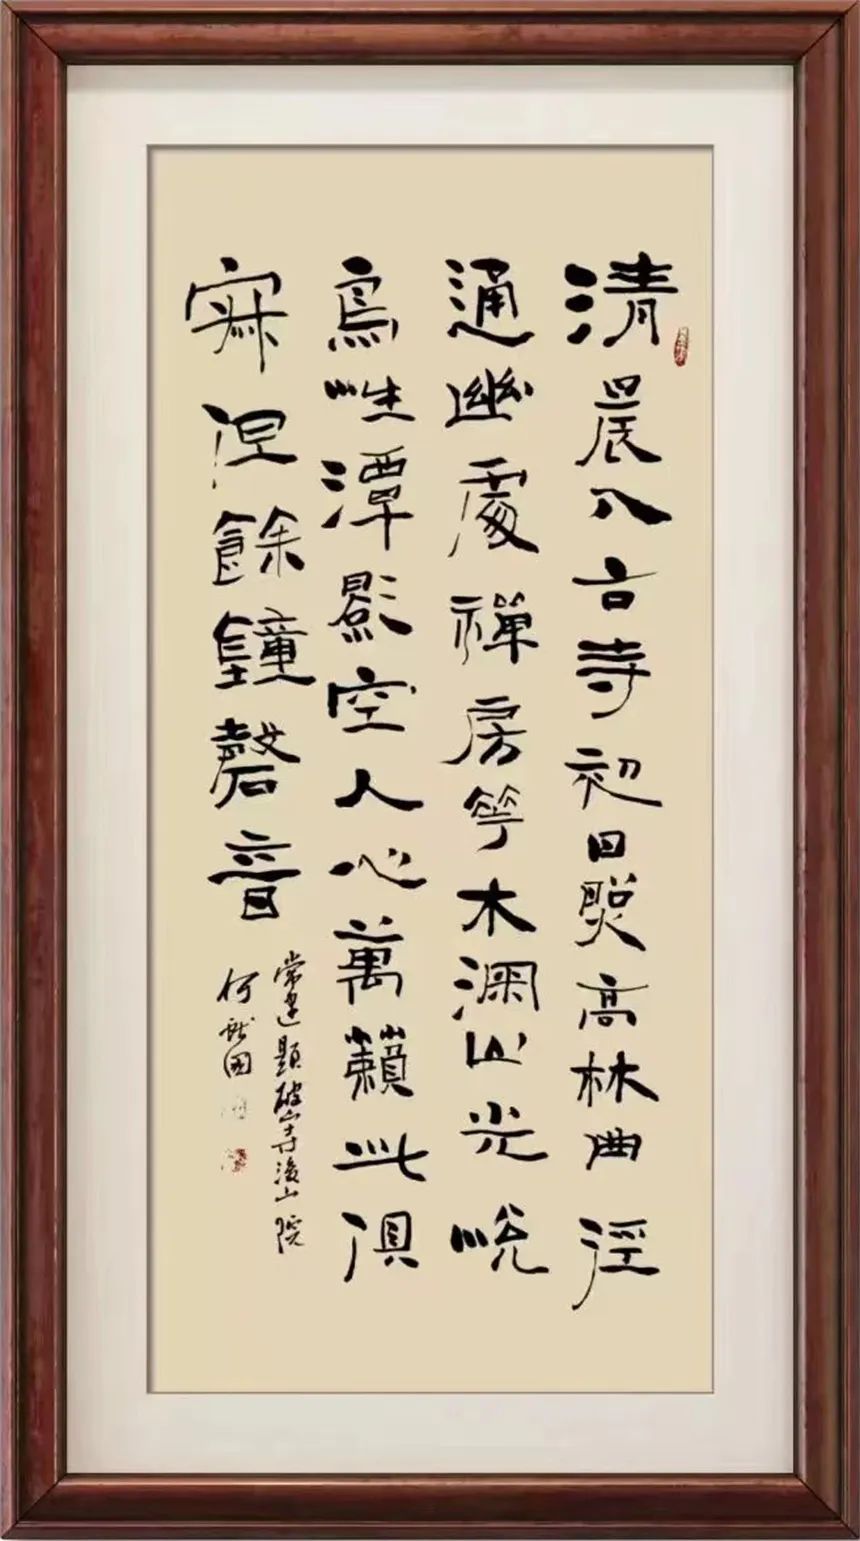 清晨入古寺初日照高林曲徑
通幽處禪房花木深山光悅
鳥性潭影空人心萬籟此俱
寂但餘鐘磬音
常建題破山寺後山院
何國